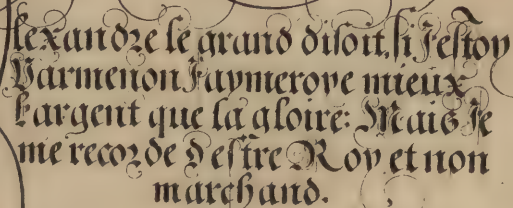 lexandre le grand disoit, si Jestoy
Parmenon Jaymeroye mieux
Largent que la gloire: Mais Je
me recorde d estre Roy et non
marchand.